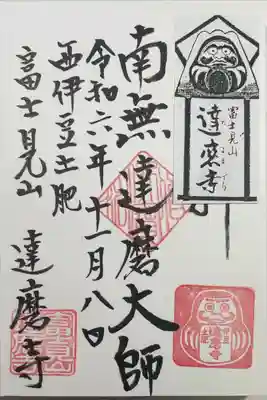 富士見山
達磨寺
南無達磨大師
令和六年十一月八日
西伊豆土肥
富士見山
達磨寺